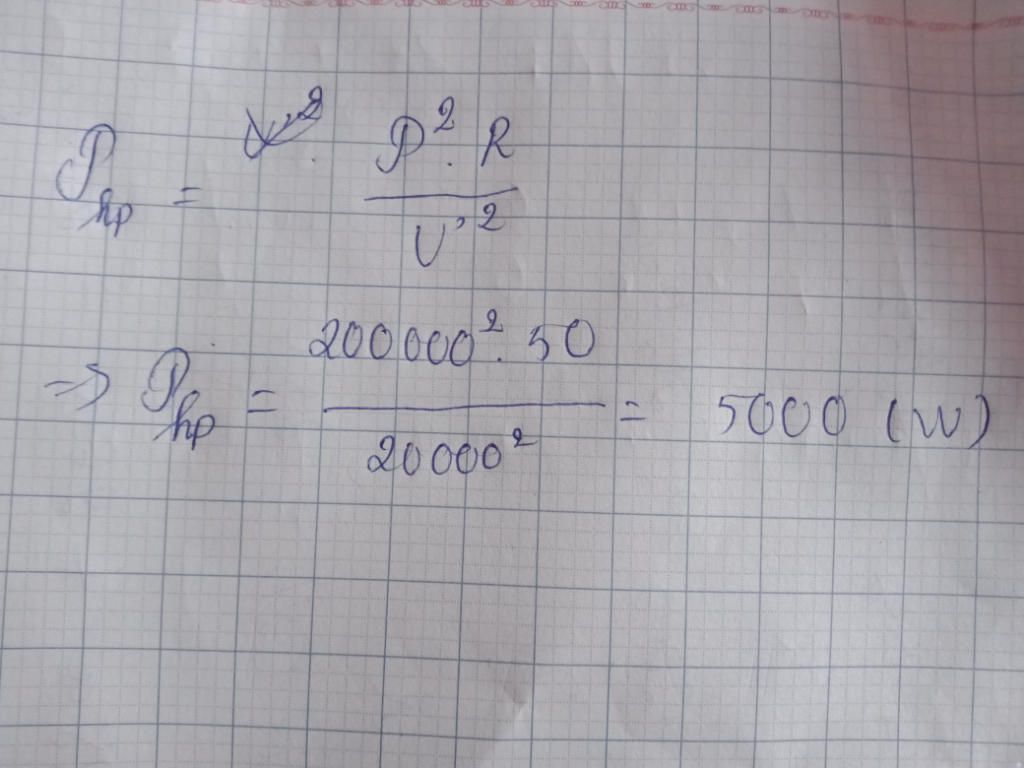 P_hp = P² . R / U²
=> P_hp = 200000² . 50 / 20000² = 5000 (W)